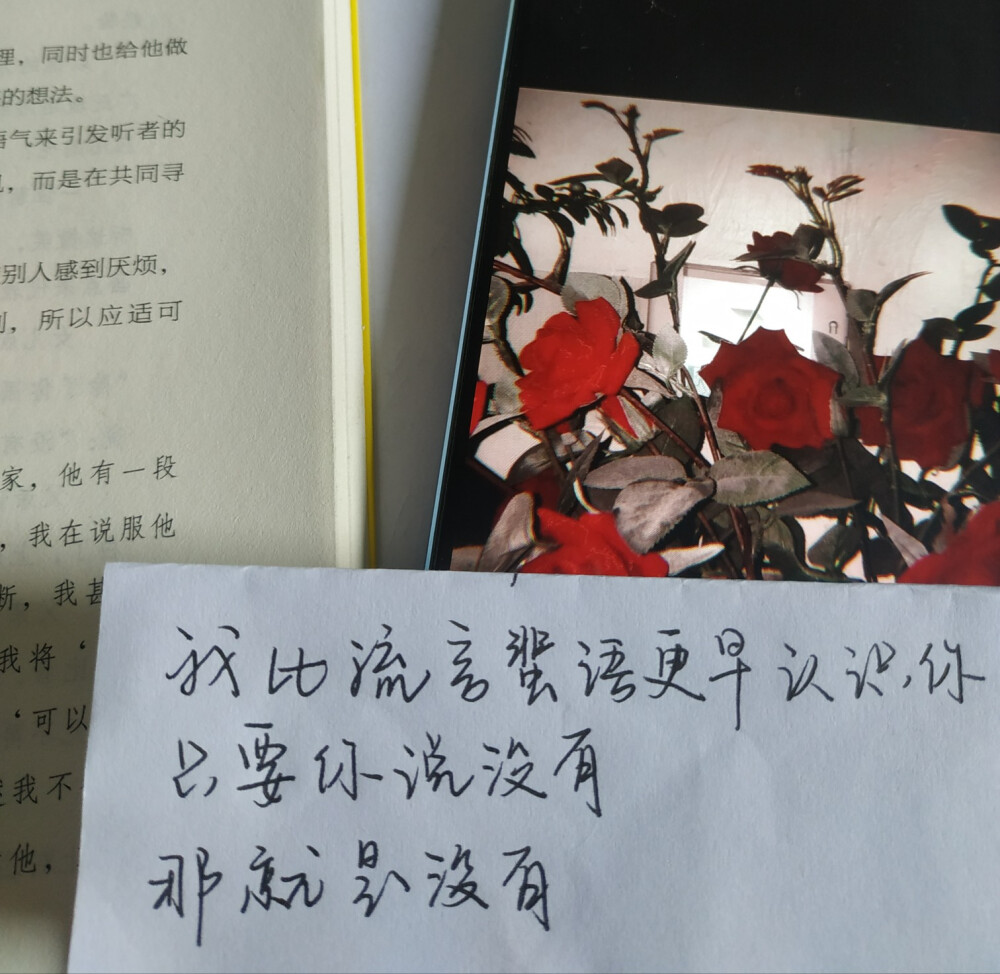 理，同时也给他做
的想法。
语气来引发听者的
，而是在共同寻
别人感到厌烦，
，所以应适可
家，他有一段
，我在说服他
断，我甚
我将‘
‘可以
我不
他，
我比流言蜚语更早认识你
只要你说没有
那就是没有